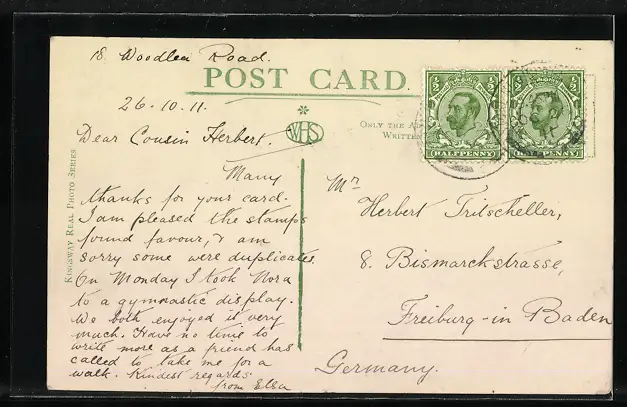 18. Woodlea Road.
POST CARD.
26.10.11.
Dear Cousin Herbert.
WHS
ONLY THE
WRITTEN
HALFPENNY
HALFPENNY
KINGSWAY REAL PHOTO SERIES
Many
thanks for your card.
I am pleased the stamps
found favour, & am
sorry some were duplicates.
On Monday I took Nora
to a gymnastic display.
We both enjoyed it very
much. Have no time to
write more as a friend has
called to take me for a
walk. Kindest regards
from Elsa
Mr
Herbert Tritscheller,
8. Bismarckstrasse,
Freiburg-in Baden
Germany.